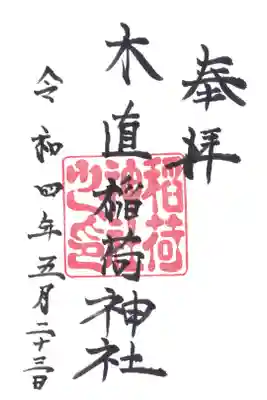 奉拝
木直稲荷神社
令和四年五月二十三日